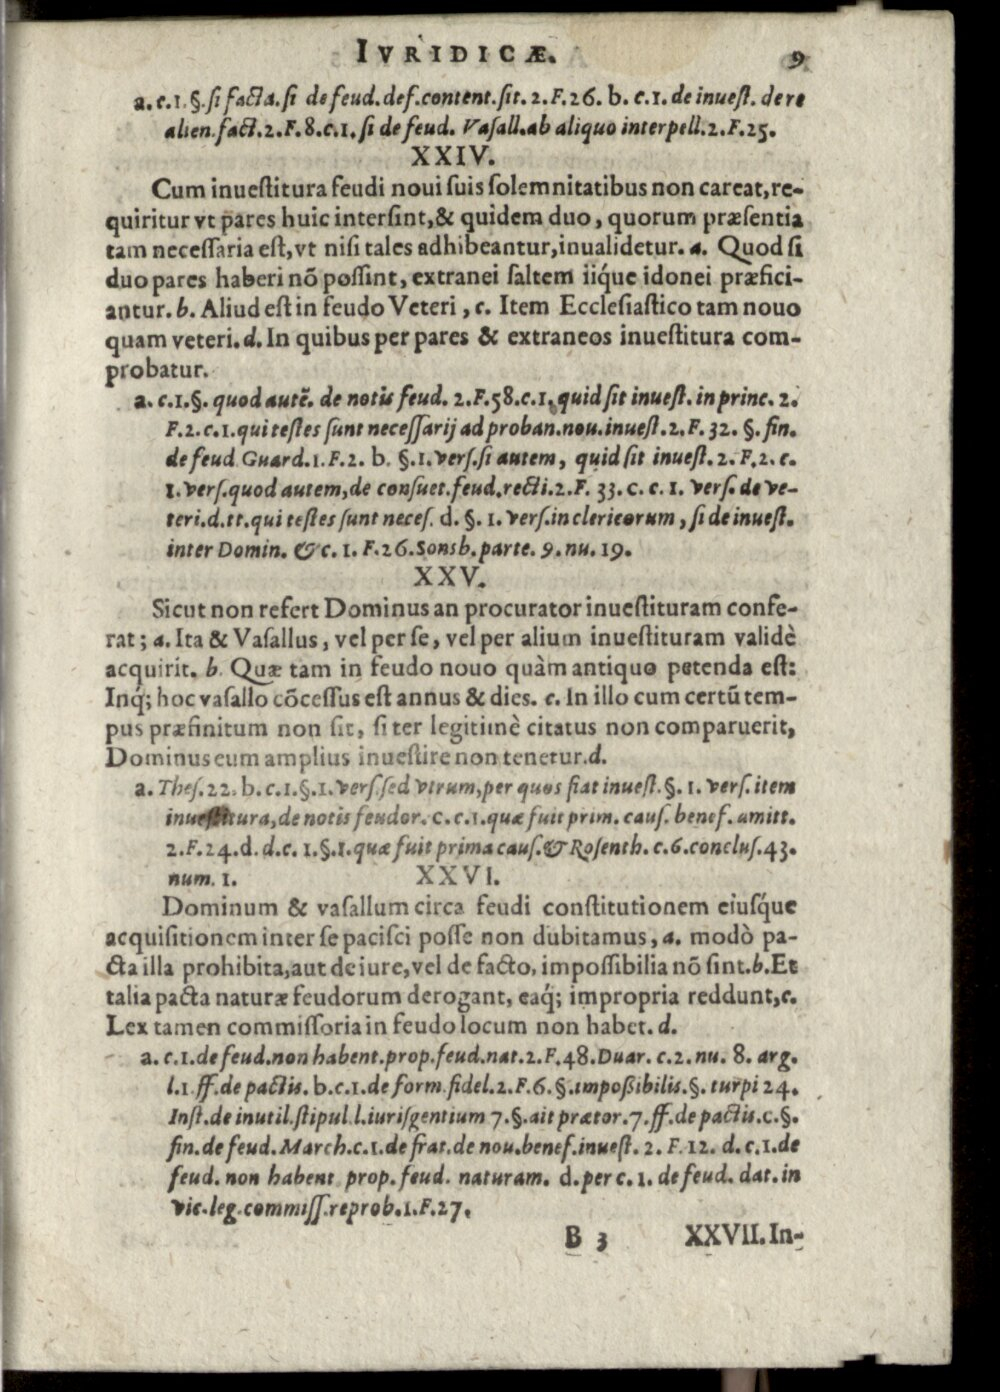 IVRIDICÆ. 9
a. c. 1. §. ſi facta. ſi de feud. def. content. ſit. 2. F. 26. b. c. 1. de inueſt. de re
alien. fact. 2. F. 8. c. 1. ſi de feud. Vaſall. ab aliquo interpell. 2. F. 25.
XXIV.
Cum inueſtitura feudi noui ſuis ſolemnitatibus non careat, re-
quiritur vt pares huic interſint, & quidem duo, quorum præſentia
tam neceſſaria eſt, vt niſi tales adhibeantur, inualidetur. a. Quod ſi
duo pares haberi nō poſſint, extranei ſaltem iiq́ue idonei præfici-
antur. b. Aliud eſt in feudo Veteri, c. Item Eccleſiaſtico tam nouo
quam veteri. d. In quibus per pares & extraneos inueſtitura com-
probatur.
a. c. 1. §. quod autē. de notis feud. 2. F. 58. c. 1. quid ſit inueſt. in princ. 2.
F. 2. c. 1. qui teſtes ſunt neceſſarij ad proban. nou. inueſt. 2. F. 32. §. fin.
de feud Guard. 1. F. 2. b. §. 1. verſ. ſi autem, quid ſit inueſt. 2. F. 2. c.
1. verſ. quod autem, de conſuet. feud. recti. 2. F. 33. c. c. 1. verſ. de ve-
teri. d. tt. qui teſtes ſunt neceſ. d. §. 1. verſ. in clericorum, ſi de inueſt.
inter Domin. & c. 1. F. 26. Sonsb. parte. 9. nu. 19.
XXV.
Sicut non refert Dominus an procurator inueſtituram confe-
rat; a. Ita & Vaſallus, vel per ſe, vel per alium inueſtituram validè
acquirit. b. Quæ tam in feudo nouo quàm antiquo petenda eſt:
Inq́; hoc vaſallo cōceſſus eſt annus & dies. c. In illo cum certū tem-
pus præfinitum non ſit, ſi ter legitimè citatus non comparuerit,
Dominus eum amplius inueſtire non tenetur. d.
a. Theſ. 22. b. c. 1. §. 1. verſ. ſed vtrum, per quos fiat inueſt. §. 1. verſ. item
inueſtitura, de notis feudor. c. c. 1. quæ fuit prim. cauſ. benef. amitt.
2. F. 24. d. d. c. 1. §. 1. quæ fuit prima cauſ. & Roſenth. c. 6. concluſ. 43.
num. 1. XXVI.
Dominum & vaſallum circa feudi conſtitutionem eiuſq́ue
acquiſitionem inter ſe paciſci poſſe non dubitamus, a. modò pa-
cta illa prohibita, aut de iure, vel de facto, impoſſibilia nō ſint. b. Et
talia pacta naturæ feudorum derogant, eaq́; impropria reddunt, c.
Lex tamen commiſſoria in feudo locum non habet. d.
a. c. 1. de feud. non habent. prop. feud. nat. 2. F. 48. Duar. c. 2. nu. 8. arg.
l. 1. ff. de pactis. b. c. 1. de form. fidel. 2. F. 6. §. impoßibilis. §. turpi 24.
Inſt. de inutil. ſtipul l. iuriſgentium 7. §. ait prætor. 7. ff. de pactis. c. §.
fin. de feud. March. c. 1. de frat. de nou. benef. inueſt. 2. F. 12. d. c. 1. de
feud. non habent prop. feud. naturam. d. per c. 1. de feud. dat. in
vic. leg. commiſſ. reprob. 1. F. 27.
B 3 XXVII. In-